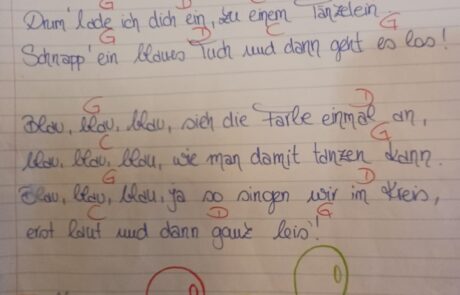 G D
Drum' lade ich dich ein, zu einem Tänzelein.
G D C G
Schnapp' ein blaues Tuch und dann geht es los!
G D
Blau, blau, blau, sieh die Farbe einmal an,
C G
blau, blau, blau, wie man damit tanzen kann.
G D
Blau, blau, blau, ja so singen wir im Kreis,
C D G
erst laut und dann ganz leis'!